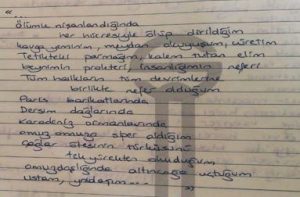 "...
Ölümle nişanlandığında
her hücresiyle ölüp dirildiğim
kavga yeminim, meydan okuyuşum, üretim
Tetikteki parmağım, kalem tutan elim
beynimin proleteri, insanlığımın neferi
Tüm halkların tüm devrimlerine
birlikte nefer olduğum
Paris barikatlarında
Dersim dağlarında
Karadeniz ormanlarında
omuz omuza siper aldığım
Çağlar ötesinin türküsünü
tek yürekten okuduğum
omuzdaşlığında altınçağa uçtuğum
Ustam, yoldaşım...
"